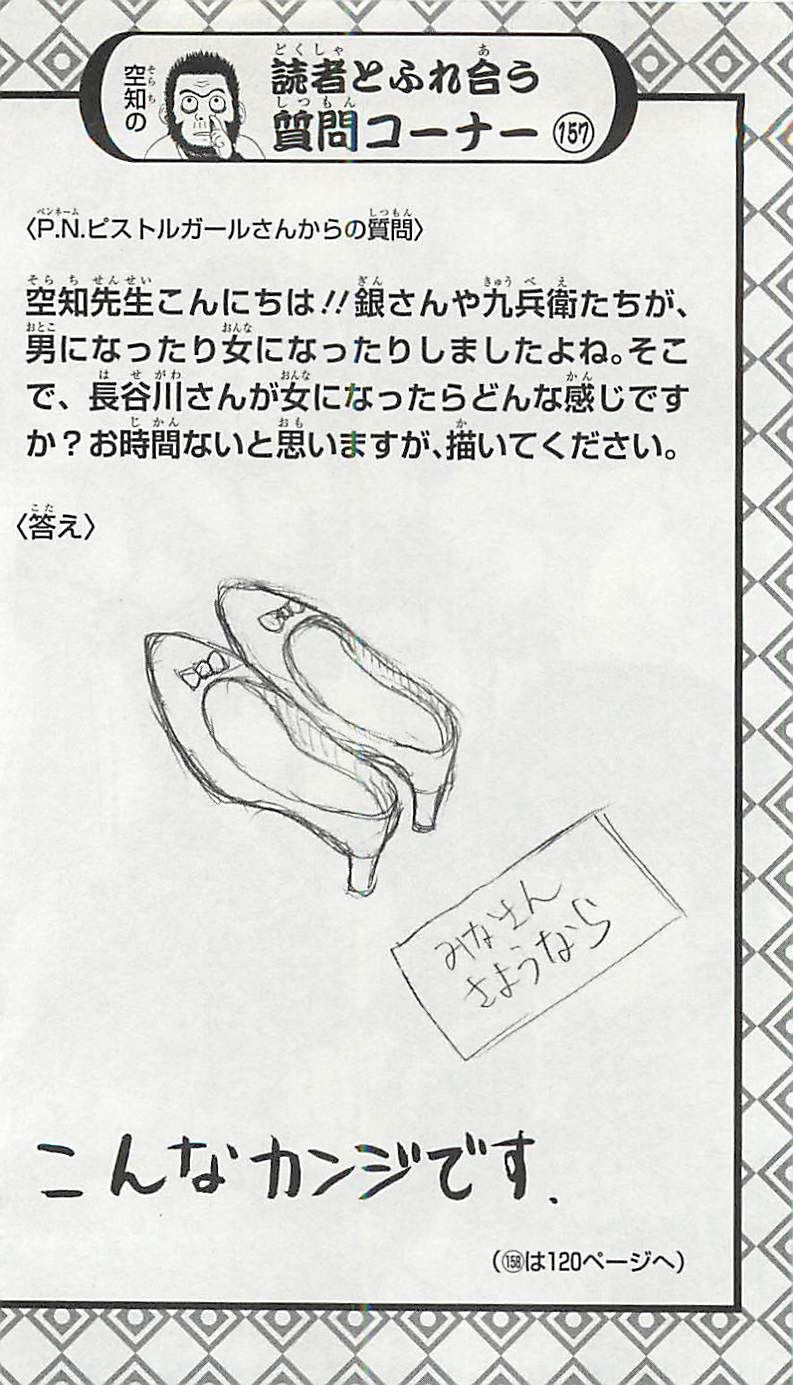 空知の
読者とふれ合う
質問コーナー 157
〈P.N.ピストルガールさんからの質問〉
空知先生こんにちは!!銀さんや九兵衛たちが、
男になったり女になったりしましたよね。そこ
で、長谷川さんが女になったらどんな感じです
か?お時間ないと思いますが、描いてください。
〈答え〉
みなさん
さようなら
こんなカンジです.
(158は120ページへ)